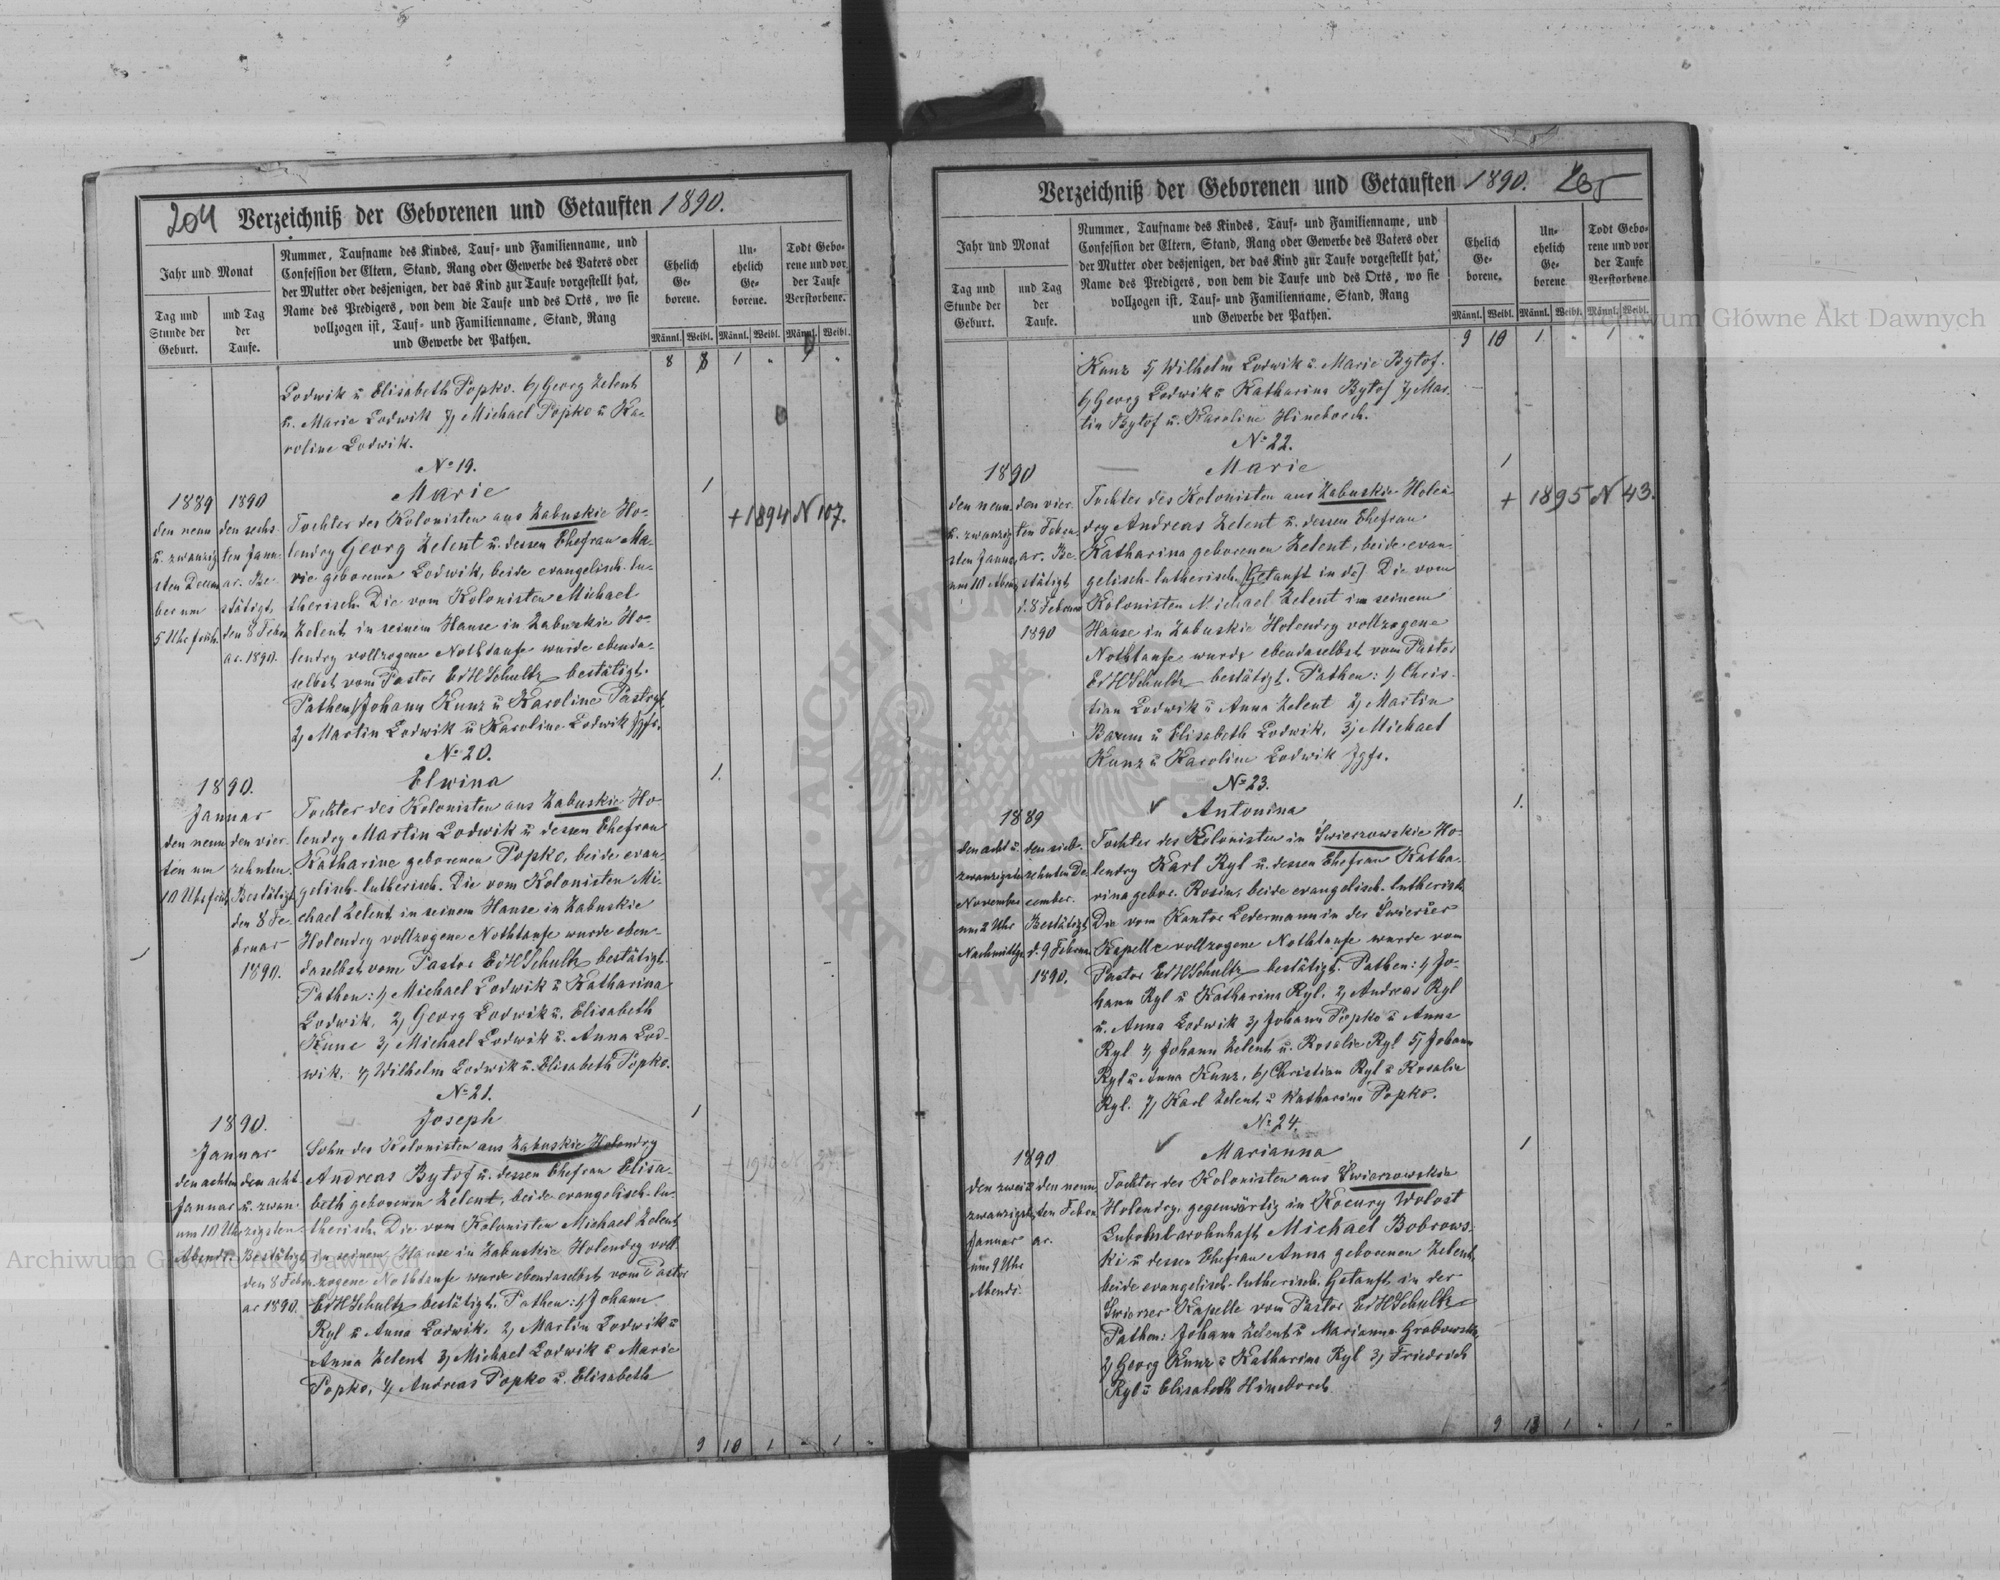 204 Verzeichniß der Geborenen und Getauften 1890.
Jahr und Monat
Tag und
Stunde der
Geburt.
und Tag
der
Taufe.
Nummer, Taufname des Kindes, Tauf- und Familienname, und
Confession der Eltern, Stand, Rang oder Gewerbe des Vaters oder
der Mutter oder desjenigen, der das Kind zur Taufe vorgestellt hat,
Name des Predigers, von dem die Taufe und des Orts, wo sie
vollzogen ist, Tauf- und Familienname, Stand, Rang
und Gewerbe der Pathen.
Ehelich
Ge-
borene.
Un-
ehelich
Ge-
borene.
Todt Gebo-
rene und vor
der Taufe
Verstorbene.
Männl. Weibl. Männl. Weibl. Männl. Weibl.
8 8 1 "
Lodwik u Elisabeth Popko. 6, Georg Zelent
u. Marie Lodwik 7, Michael Popko u Ka-
roline Lodwik.
No 19.
Marie
1
1889 1890
den neun
u. zwanzig
sten Decem
ber um
5 Uhr früh.
den sechs
ten Janu-
ar. Be-
stätigt
den 8 Febru
ar. 1890.
Tochter des Kolonisten aus Zabuskie Ho-
lendry Georg Zelent u. dessen Ehefrau Ma-
rie geborenen Lodwik, beide evangelisch-lu-
therisch. Die vom Kolonisten Michael
Zelent in seinem Hause in Zabuskie Ho-
lendry vollzogene Nothtaufe wurde ebenda-
selbst vom Pastor EdHSchultz bestätigt.
Pathen: 1, Johann Kunz u Karoline
2, Martin Lodwik u Karoline Lodwik Jgfr.
+ 1894 N 107.
No 20.
Elwina
1.
1890.
Januar
den neun
ten um
10 Uhr früh.
den vier-
zehnten.
Bestätigt
den 8 Fe-
bruar
1890.
Tochter des Kolonisten aus Zabuskie Ho-
lendry Martin Lodwik u dessen Ehefrau
Katharine geborenen Popko, beide evan-
gelisch-lutherisch. Die vom Kolonisten Mi-
chael Zelent in seinem Hause in Zabuskie
Holendry vollzogene Nothtaufe wurde eben-
daselbst vom Pastor EdHSchultz bestätigt.
Pathen: 1, Michael Lodwik u Katharina
Lodwik, 2, Georg Lodwik u. Elisabeth
Kunc 3, Michael Lodwik u. Anna Lod-
wik, 4, Wilhelm Lodwik u. Elisabeth Popko.
No 21.
Joseph
1
1890.
Januar
den achten
Januar
um 10 Uhr
Abends.
den acht
u. zwan-
zigsten.
Bestätigt
den 8 Febru
ar 1890.
Sohn des Kolonisten aus Zabuskie Holendry
Andreas Bytof u. dessen Ehefrau Elisa-
beth geborenen Zelent, beide evangelisch-lu-
therisch. Die vom Kolonisten Michael Zelent
in seinem Hause in Zabuskie Holendry voll-
zogene Nothtaufe wurde ebendaselbst vom Pastor
EdHSchultz bestätigt. Pathen: 1, Johann
Ryl u Anna Lodwik, 2, Martin Lodwik u
Anna Zelent 3, Michael Lodwik u Marie
Popko, 4, Andreas Popko u. Elisabeth
9 10 1 " 1 "
Verzeichniß der Geborenen und Getauften 1890. 205
Jahr und Monat
Tag und
Stunde der
Geburt.
und Tag
der
Taufe.
Nummer, Taufname des Kindes, Tauf- und Familienname, und
Confession der Eltern, Stand, Rang oder Gewerbe des Vaters oder
der Mutter oder desjenigen, der das Kind zur Taufe vorgestellt hat,
Name des Predigers, von dem die Taufe und des Orts, wo sie
vollzogen ist, Tauf- und Familienname, Stand, Rang
und Gewerbe der Pathen.
Ehelich
Ge-
borene.
Un-
ehelich
Ge-
borene.
Todt Gebo-
rene und vor
der Taufe
Verstorbene.
Männl. Weibl. Männl. Weibl. Männl. Weibl.
9 10 1 " 1 "
Kunz 5, Wilhelm Lodwik u. Marie Bytof.
6, Georg Lodwik u Katharina Bytof 7, Mar-
tin Bytof u. Karoline Hineborch.
No 22.
Marie
1
1890
den neun
u. zwanzig
sten Januar
um 10 Abends
den vier-
ten Febru-
ar. Be-
stätigt
d. 8 Februar
1890
Tochter des Kolonisten aus Zabuskie Holen-
dry Andreas Zelent u. dessen Ehefrau
Katharina geborenen Zelent, beide evan-
gelisch-lutherisch. [Getauft in de] Die vom
Kolonisten Michael Zelent in seinem
Hause in Zabuskie Holendry vollzogene
Nothtaufe wurde ebendaselbst vom Pastor
EdHSchultz bestätigt. Pathen: 1, Chris-
tian Lodwik u Anna Zelent 2, Martin
Baum u Elisabeth Lodwik, 3, Michael
Kunz u Karoline Lodwik Jgfr.
+ 1895 N 43.
No 23.
Antonina
1.
1889
den acht u.
zwanzigsten
November
um 2 Uhr
Nachmittgs.
den sieb-
zehnten De-
cember.
Bestätigt
d. 9 Februar
1890.
Tochter des Kolonisten in Swierzowskie Ho-
lendry Karl Ryl u. dessen Ehefrau Katha-
rina gebor. Rosin, beide evangelisch-lutherisch.
Die vom Kantor Ledermann in der Swierzer
Kapelle vollzogene Nothtaufe wurde vom
Pastor EdHSchultz bestätigt. Pathen: 1, Jo-
hann Ryl u Katharina Ryl, 2, Andreas Ryl
u. Anna Lodwik 3, Johann Popko u Anna
Ryl 4, Johann Zelent u. Rosalie Ryl 5, Johann
Ryl u Anna Kunz, 6, Christian Ryl u Rosalie
Ryl. 7, Karl Zelent u Katharina Popko.
No 24.
Marianna
1
1890
den zwei u
zwanzigsten
Januar
um 9 Uhr
Abends.
den neun
ten Febru
ar.
Tochter des Kolonisten aus Swierzowskie
Holendry, gegenwärtig in Kocury Wolost
wohnhaft Michael Bobrows-
ki u dessen Ehefrau Anna geborenen Zelent,
beide evangelisch-lutherisch. Getauft in der
Swierzer Kapelle vom Pastor EdHSchultz
Pathen: Johann Zelent u Marianna Grabowska,
2, Georg Kunz u Katharina Ryl 3, Friedrich
Ryl u Elisabeth Hineborch
9 13 1 " 1 "
Archiwum Główne Akt Dawnych
Archiwum Główne Akt Dawnych